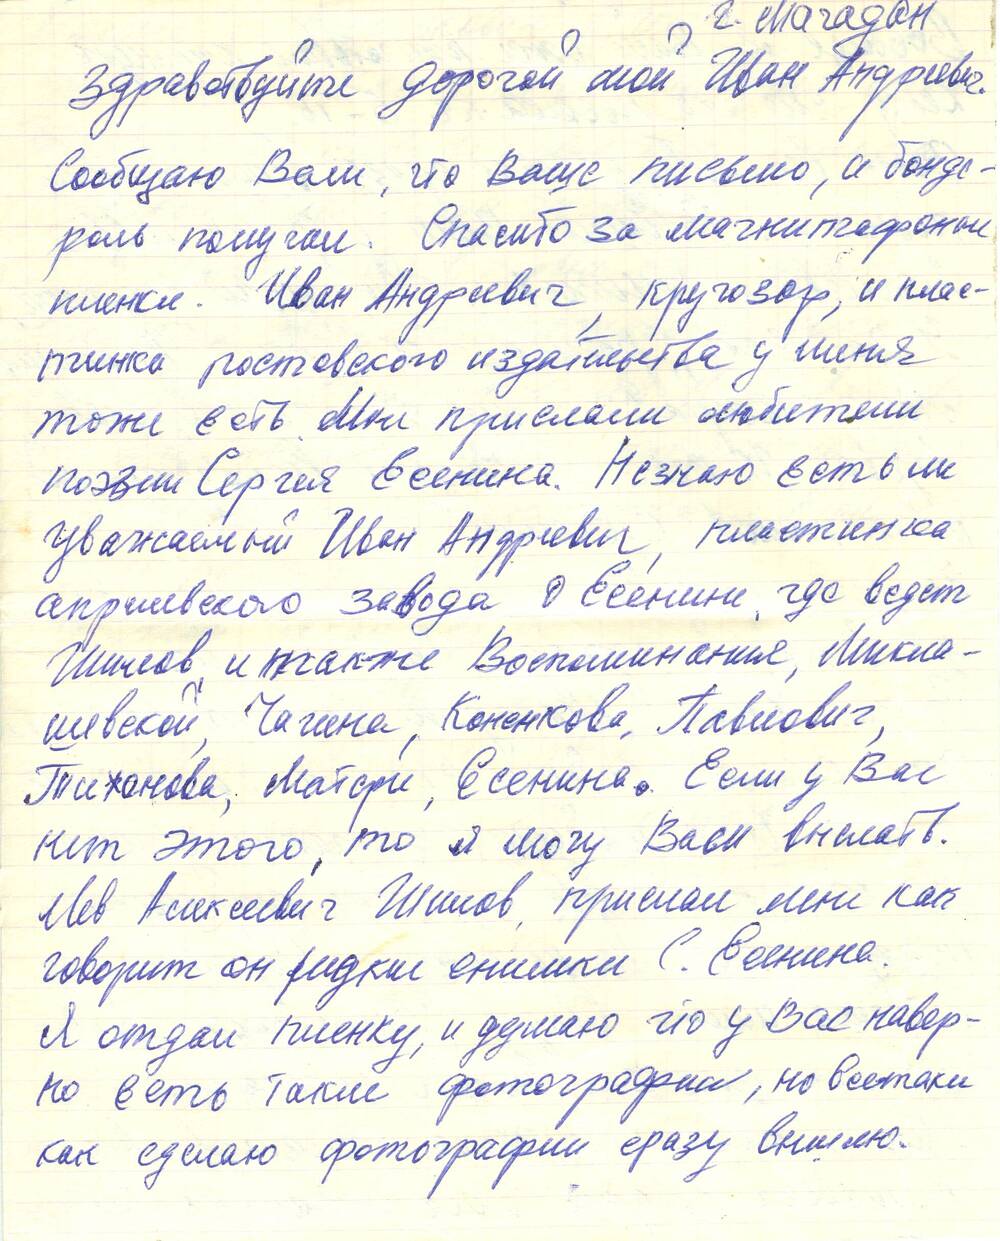 г. Магадан
Здравствуйте дорогой мой Иван Андреевич.
Сообщаю Вам, что Ваще письмо, и банде-
роль получил. Спасибо за магнитафоные
пленки. Иван Андреевич, кругозор, и плас-
тинка ростовского издательства у меня
тоже есть. Мне прислали любители
поэзии Сергея Есенина. Незнаю есть ли
уважаемый Иван Андреевич, пластинка
апрлевского завода о Есенине, где ведет
Шилов, и также Воспоминания, Микла-
шевской, Чагина, Коненкова, Павлович,
Тиханова, Матери, Есенина. Если у Вас
нет этого, то я могу Вам выслать.
Лев Алексеевич Шилов, прислал мне как
говорит он редкие снимки С. Есенина.
Я отдал пленку, и думаю что у Вас навер-
но есть такие фотографии, но всетаки
как сделаю фотографии сразу вышлю.